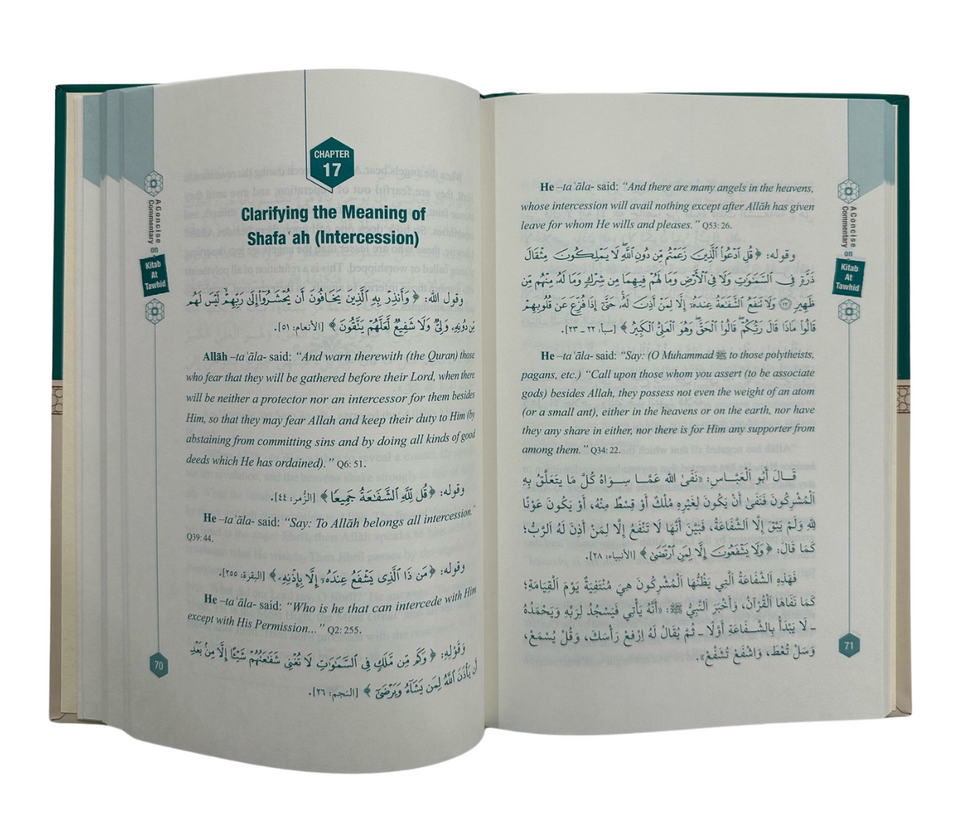 A Concise
Commentary
on
Kitab
At
Tawhid
CHAPTER
17
Clarifying the Meaning of
Shafaʿah (Intercession)
وقول الله: ﴿ وَأَنذِرْ بِهِ ٱلَّذِينَ يَخَافُونَ أَن يُحْشَرُوٓا۟ إِلَىٰ رَبِّهِمْ ۙ لَيْسَ لَهُم
مِّن دُونِهِۦ وَلِىٌّ وَلَا شَفِيعٌ لَّعَلَّهُمْ يَتَّقُونَ ﴾ [الأنعام: ٥١].
Allāh –taʿāla- said: “And warn therewith (the Quran) those
who fear that they will be gathered before their Lord, when there
will be neither a protector nor an intercessor for them besides
Him, so that they may fear Allah and keep their duty to Him (by
abstaining from committing sins and by doing all kinds of good
deeds which He has ordained).” Q6: 51.
وقوله: ﴿ قُل لِّلَّهِ ٱلشَّفَـٰعَةُ جَمِيعًا ﴾ [الزُّمر: ٤٤].
He –taʿāla- said: “Say: To Allāh belongs all intercession.”
Q39: 44.
وقوله: ﴿ مَن ذَا ٱلَّذِى يَشْفَعُ عِندَهُۥٓ إِلَّا بِإِذْنِهِۦ ﴾ [البقرة: ٢٥٥].
He –taʿāla- said: “Who is he that can intercede with Him
except with His Permission...” Q2: 255.
وَقَوْلِهِ: ﴿ وَكَم مِّن مَّلَكٍ فِى ٱلسَّمَـٰوَٰتِ لَا تُغْنِى شَفَـٰعَتُهُمْ شَيْـًٔا إِلَّا مِنۢ بَعْدِ
أَن يَأْذَنَ ٱللَّهُ لِمَن يَشَآءُ وَيَرْضَىٰٓ ﴾ [النجم: ٢٦].
70
He –taʿāla- said: “And there are many angels in the heavens,
whose intercession will avail nothing except after Allāh has given
leave for whom He wills and pleases.” Q53: 26.
وقوله: ﴿ قُلِ ٱدْعُوا۟ ٱلَّذِينَ زَعَمْتُم مِّن دُونِ ٱللَّهِ ۖ لَا يَمْلِكُونَ مِثْقَالَ
ذَرَّةٍ فِى ٱلسَّمَـٰوَٰتِ وَلَا فِى ٱلْأَرْضِ وَمَا لَهُمْ فِيهِمَا مِن شِرْكٍ وَمَا لَهُۥ مِنْهُم مِّن
ظَهِيرٍ ٢٢ وَلَا تَنفَعُ ٱلشَّفَـٰعَةُ عِندَهُۥٓ إِلَّا لِمَنْ أَذِنَ لَهُۥ ۚ حَتَّىٰٓ إِذَا فُزِّعَ عَن قُلُوبِهِمْ
قَالُوا۟ مَاذَا قَالَ رَبُّكُمْ ۖ قَالُوا۟ ٱلْحَقَّ ۖ وَهُوَ ٱلْعَلِىُّ ٱلْكَبِيرُ ﴾ [سبأ: ٢٢ - ٢٣].
He –taʿāla- said: “Say: (O Muhammad ﷺ to those polytheists,
pagans, etc.) “Call upon those whom you assert (to be associate
gods) besides Allah, they possess not even the weight of an atom
(or a small ant), either in the heavens or on the earth, nor have
they any share in either, nor there is for Him any supporter from
among them.” Q34: 22.
قَـالَ أَبُو العَبَّـاسِ: «نَفَى اللهُ عَمَّـا سِـوَاهُ كُلَّ مَا يَتَعَلَّقُ بِهِ
الْمُشْرِكُونَ فَنَفَى أَنْ يَكُونَ لِغَيْرِهِ مُلْكٌ أَوْ قِسْطٌ مِنْهُ، أَوْ يَكُونَ عَوْنًا
لِلهِ وَلَمْ يَبْقَ إِلَّا الشَّفَاعَةُ، فَبَيَّنَ أَنَّهَا لَا تَنْفَعُ إِلَّا لِمَنْ أَذِنَ لَهُ الرَّبُّ؛
كَمَا قَالَ: ﴿ وَلَا يَشْفَعُونَ إِلَّا لِمَنِ ٱرْتَضَىٰ ﴾ [الأنبياء: ٢٨].
فَهَذِهِ الشَّفَاعَةُ الَّتِي يَظُنُّهَا الْمُشْرِكُونَ هِيَ مُنْتَفِيَةٌ يَوْمَ الْقِيَامَةِ؛
كَمَا نَفَاهَا الْقُرْآنُ، وَأَخْبَرَ النَّبِيُّ ﷺ: «أَنَّهُ يَأْتِي فَيَسْجُدُ لِرَبِّهِ وَيَحْمَدُهُ
ـ لَا يَبْدَأُ بِالشَّـفَاعَةِ أَوَّلًا ـ ثُمَّ يُقَالُ لَهُ ارْفَعْ رَأْسَكَ، وَقُلْ يُسْمَعْ،
وَسَلْ تُعْطَ، وَاشْفَعْ تُشَفَّعْ».
A Concise
Commentary
on
Kitab
At
Tawhid
71